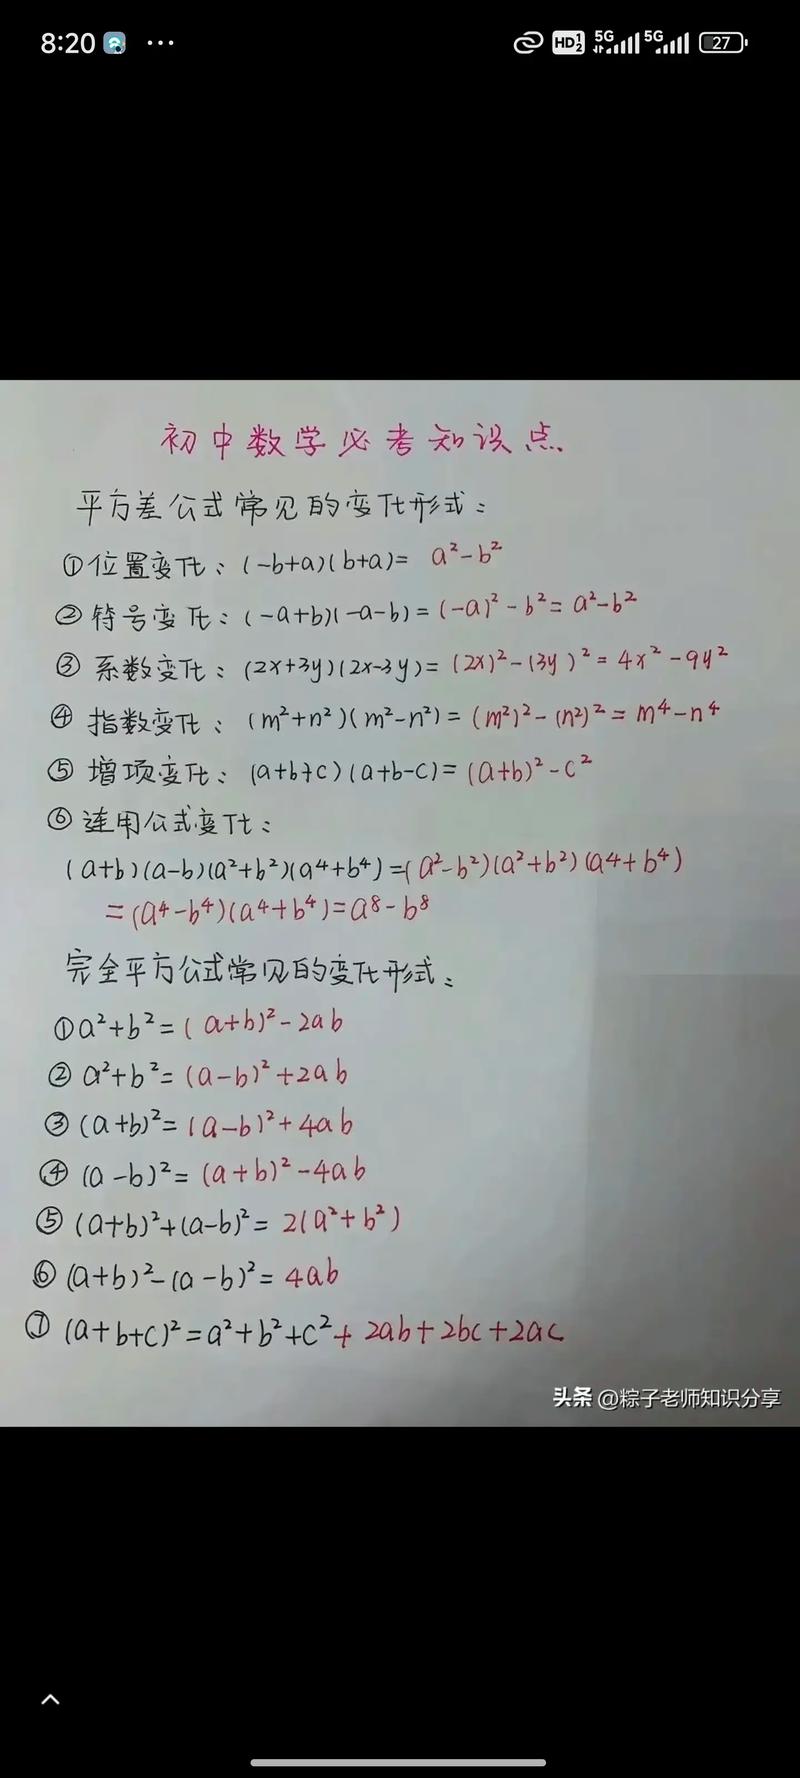 8:20 ··· HD 1 2 5G 5G 27
初中数学必考知识点.
平方差公式常见的变化形式:
①位置变化:(-b+a)(b+a)= a²-b²
②符号变化:(-a+b)(-a-b)=(-a)²-b²=a²-b²
③系数变化:(2x+3y)(2x-3y)=(2x)²-(3y)²=4x²-9y²
④指数变化:(m²+n²)(m²-n²)=(m²)²-(n²)²=m⁴-n⁴
⑤增项变化:(a+b+c)(a+b-c)=(a+b)²-c²
⑥连用公式变化:
(a+b)(a-b)(a²+b²)(a⁴+b⁴)=(a²-b²)(a²+b²)(a⁴+b⁴)
=(a⁴-b⁴)(a⁴+b⁴)=a⁸-b⁸
完全平方公式常见的变化形式:
①a²+b²=(a+b)²-2ab
②a²+b²=(a-b)²+2ab
③(a+b)²=(a-b)²+4ab
④(a-b)²=(a+b)²-4ab
⑤(a+b)²+(a-b)²=2(a²+b²)
⑥(a+b)²-(a-b)²=4ab
⑦(a+b+c)²=a²+b²+c²+2ab+2bc+2ac
头条 @粽子老师知识分享